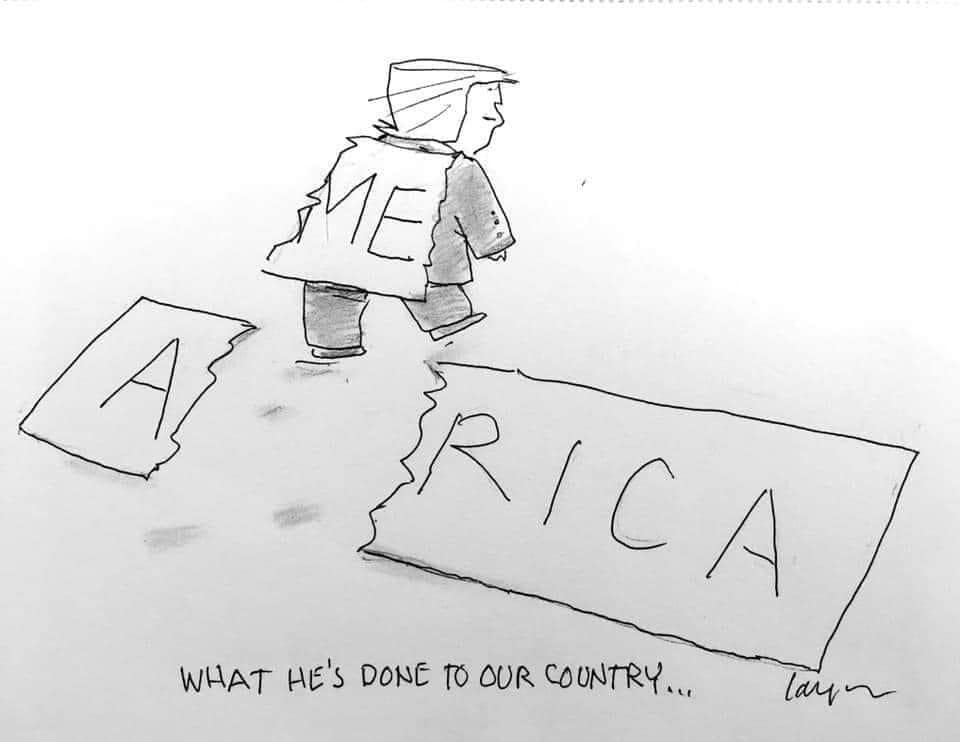 ME
A
RICA
WHAT HE'S DONE TO OUR COUNTRY...